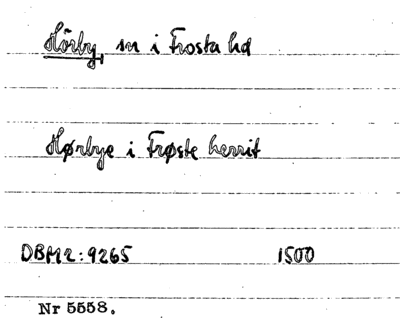 Hörby, sn i Frosta hd
Hørbye i Frøste herrit
DBM2:9265 1500
Nr 5558.